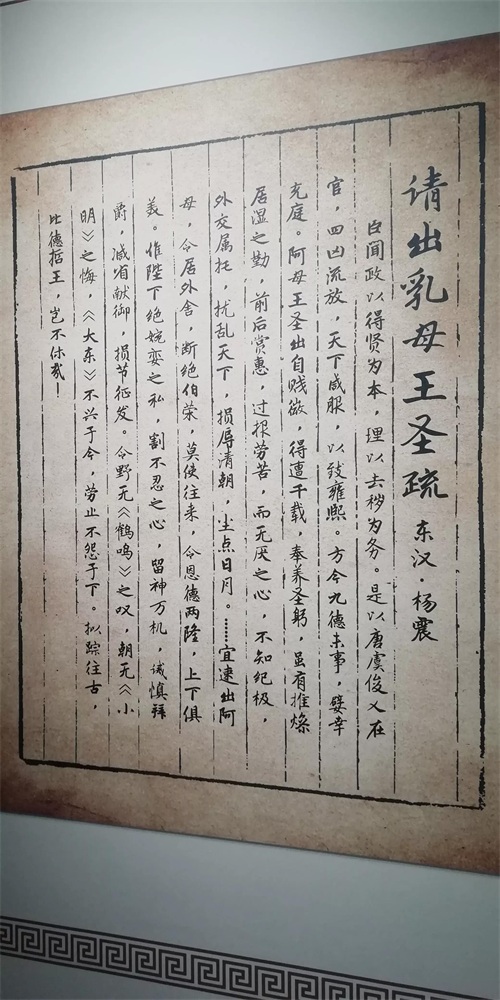 请出乳母王圣疏 东汉·杨震
臣闻政以得贤为本，理以去秽为务。是以唐虞俊乂在
官，四凶流放，天下咸服，以致雍熙。方今九德未事，嬖幸
充庭。阿母王圣出自贱微，得遭千载，奉养圣躬，虽有推燥
居湿之勤，前后赏惠，过报劳苦，而无厌之心，不知纪极，
外交属托，扰乱天下，损辱清朝，尘点日月。……宜速出阿
母，令居外舍，断绝伯荣，莫使往来，令恩德两隆，上下俱
美。惟陛下绝婉娈之私，割不忍之心，留神万机，诫慎拜
爵，减省献御，损节征发。令野无《鹤鸣》之叹，朝无《小
明》之悔，《大东》不兴于今，劳止不怨于下。拟踪往古，
比德哲王，岂不休哉！